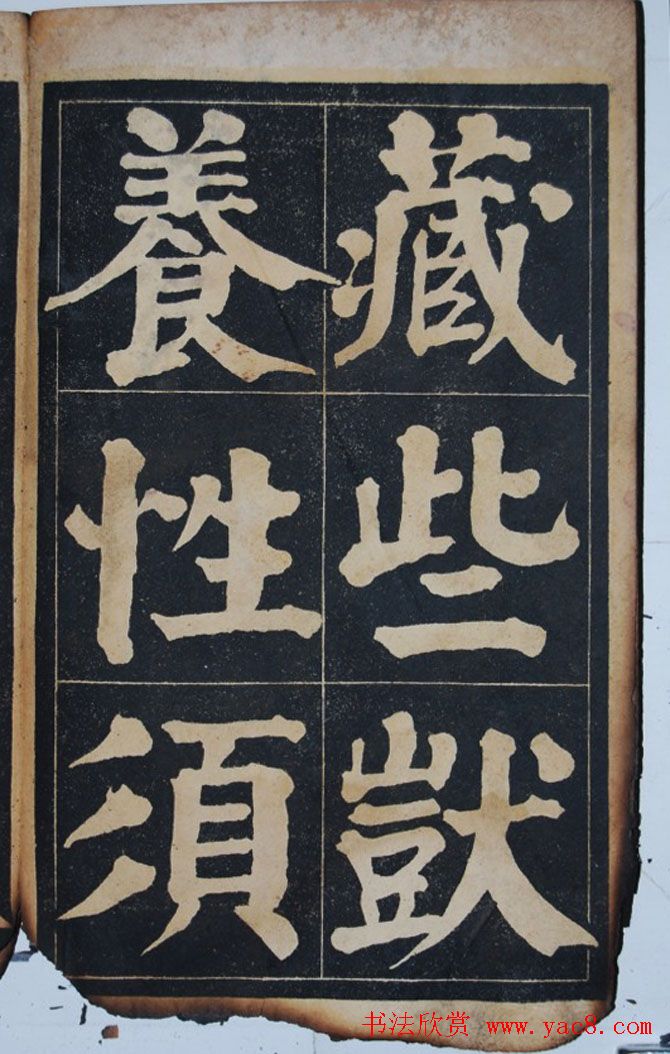 藏些獃
養性須
书法欣赏 www.yac8.com